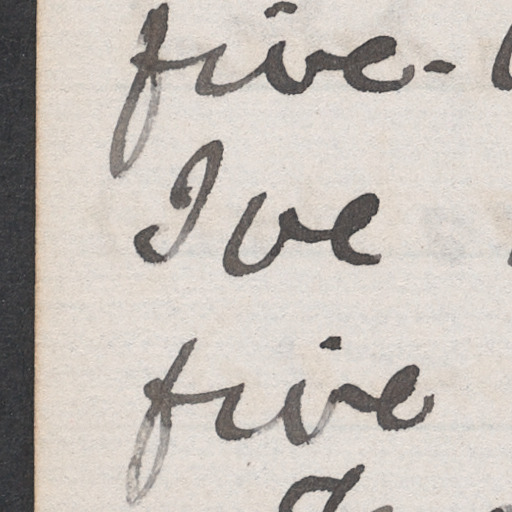 five-
I've
five